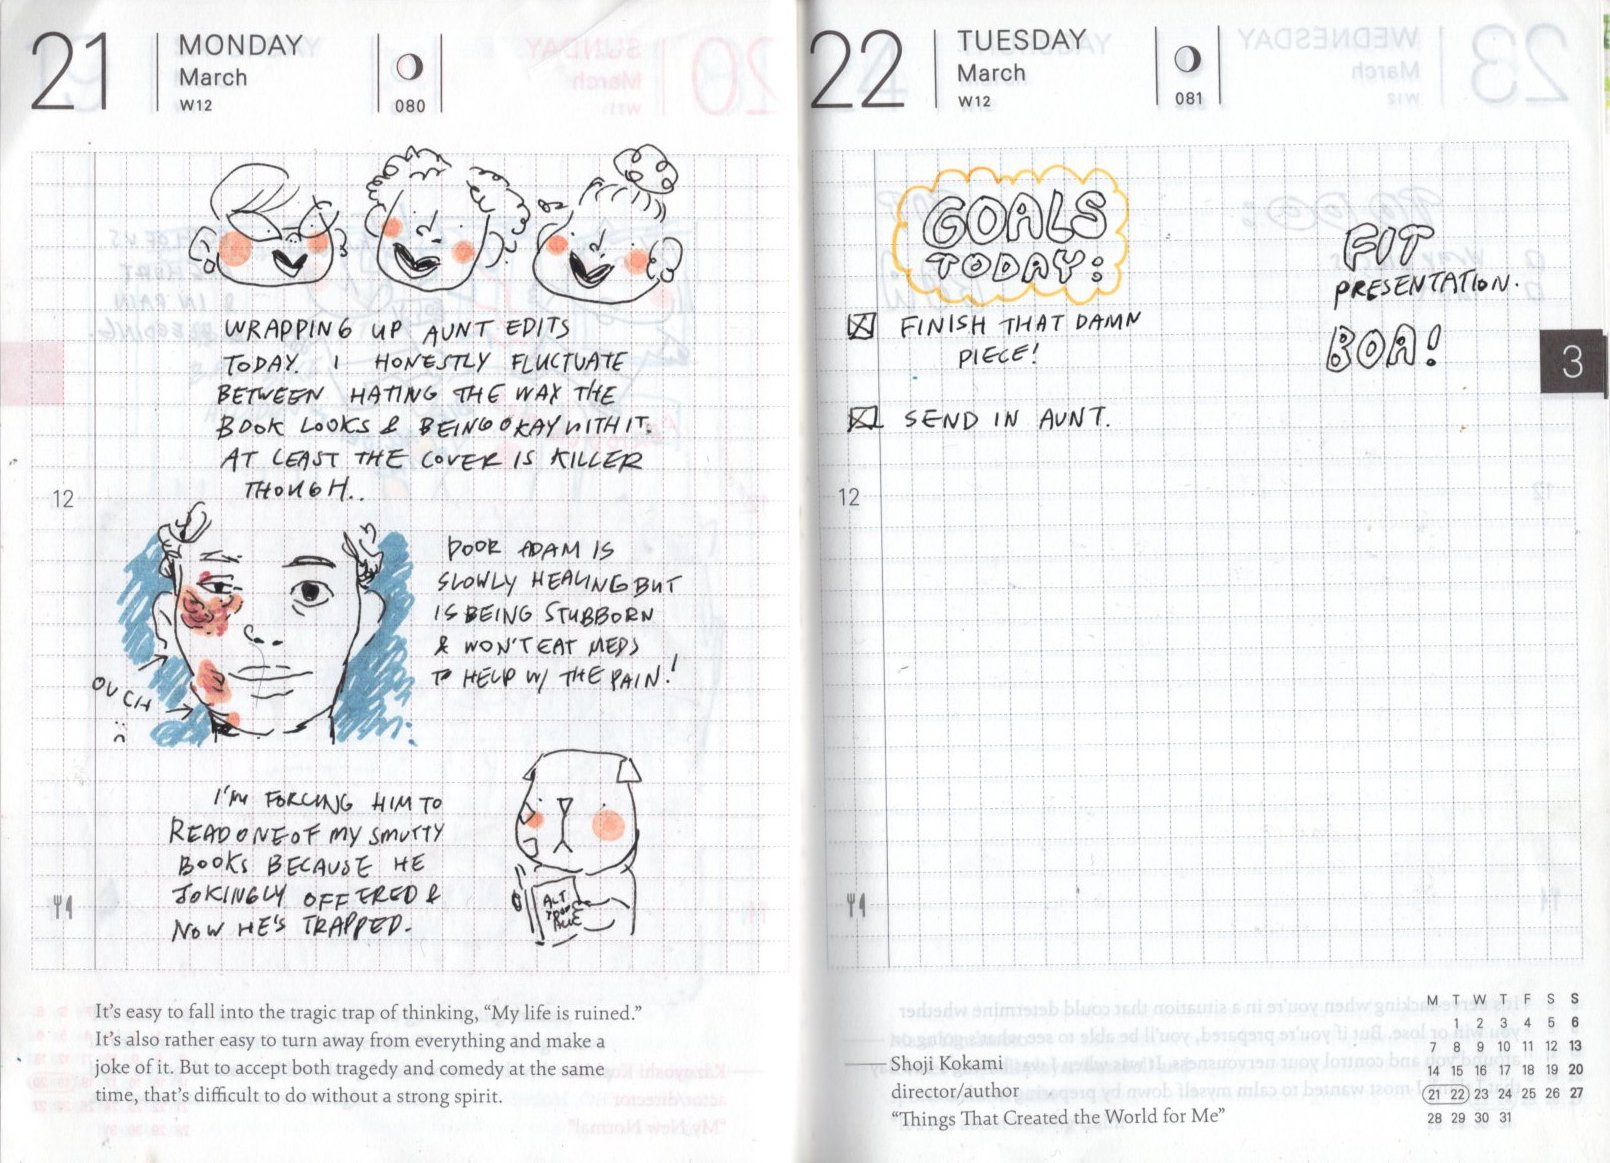 21
MONDAY
March
W12
080
WRAPPING UP AUNT EDITS
TODAY. I HONESTLY FLUCTUATE
BETWEEN HATING THE WAY THE
BOOK LOOKS & BEING OKAY WITH IT.
AT LEAST THE COVER IS KILLER
THOUGH..
12
POOR ADAM IS
SLOWLY HEALING BUT
IS BEING STUBBORN
& WON'T EAT MEDS
TO HELP W/ THE PAIN!
OUCH
:(
I'M FORCING HIM TO
READ ONE OF MY SMUTTY
BOOKS BECAUSE HE
JOKINGLY OFFERED &
NOW HE'S TRAPPED.
ALT
It's easy to fall into the tragic trap of thinking, “My life is ruined.”
It's also rather easy to turn away from everything and make a
joke of it. But to accept both tragedy and comedy at the same
time, that's difficult to do without a strong spirit.
22
TUESDAY
March
W12
081
GOALS
TODAY:
FINISH THAT DAMN
PIECE!
SEND IN AUNT.
FIT
PRESENTATION.
BOA!
3
12
Shoji Kokami
director/author
“Things That Created the World for Me”
M T W T F S S
1 2 3 4 5 6
7 8 9 10 11 12 13
14 15 16 17 18 19 20
21 22 23 24 25 26 27
28 29 30 31